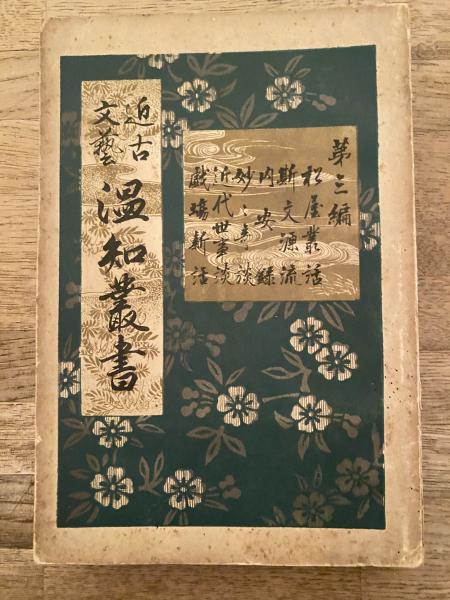 近古
文藝
温知叢書
第三編
松屋叢話
斯文源流
内安録
妙々奇談
近代世事談
戯場新話